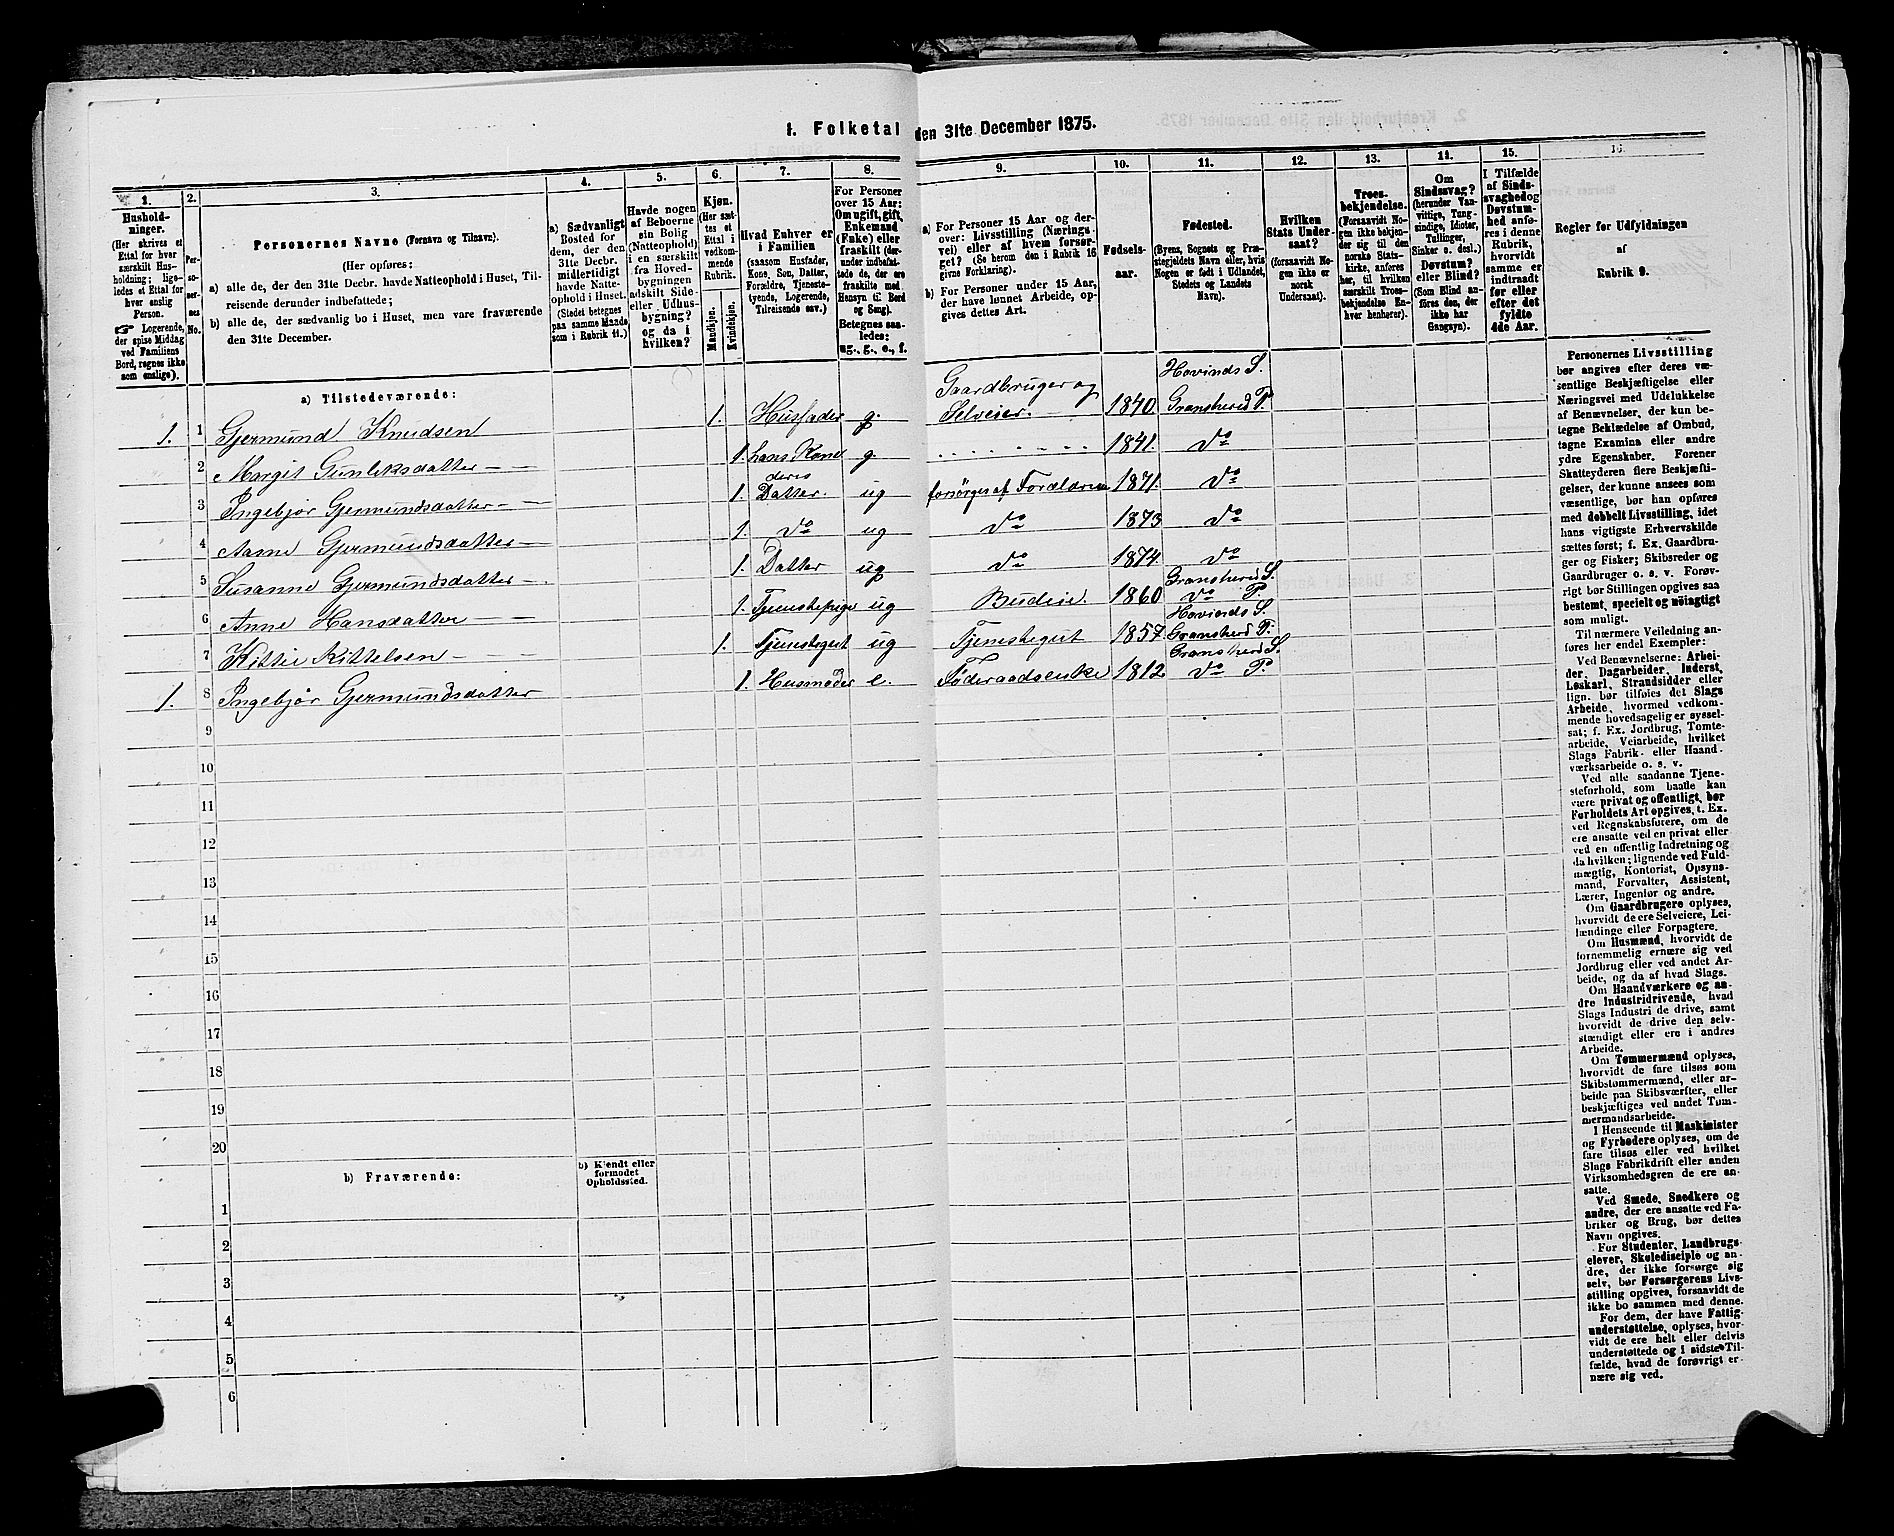 1. Folketal den 31te December 1875.
1.
2.
3.
4.
5.
6.
7.
8.
9.
10.
11.
12.
13.
14.
15.
16.
Hushold-
ninger.
(Her skrives et
Ettal for hver
særskilt Hus-
holdning; lige-
ledes et Ettal for
hver enslig
Person.
☞ Logerende,
der spise Middag
ved Familiens
Bord, regnes ikke
som enslige).
Per-
so-
ner-
nes
No.
Personernes Navne (Fornavn og Tilnavn).
(Her opføres:
a) alle de, der den 31te Decbr. havde Natteophold i Huset, Til-
reisende derunder indbefattede;
b) alle de, der sædvanlig bo i Huset, men vare fraværende
den 31te December.
a) Sædvanligt
Bosted for
dem, der den
31te Decbr.
midlertidigt
havde Natte-
ophold i Huset.
(Stedet betegnes
paa samme Maade
som i Rubrik 11.)
Havde nogen
af Beboerne
sin Bolig
(Natteophold)
i en særskilt
fra Hoved-
bygningen
adskilt Side-
eller Udhus-
bygning?
og da i
hvilken?
Kjøn.
(Her sæt-
tes et
Ettal i
vedkom-
mende
Rubrik.
Mandkjøn.
Kvindekjøn.
Hvad Enhver er
i Familien
(saasom Husfader,
Kone, Søn, Datter,
Forældre, Tjeneste-
tyende, Logerende,
Tilreisende osv.)
For Personer
over 15 Aar:
Om ugift, gift,
Enkemand
(Enke) eller
fraskilt (der-
under indbefat-
tede de, der ere
fraskilte med
Hensyn til Bord
og Seng).
Betegnes saa-
ledes:
ug., g., e., f.
a) For Personer 15 Aar og der-
over: Livsstilling (Nærings-
vei) eller af hvem forsør-
get? (Se herom den i Rubrik 16
givne Forklaring).
b) For Personer under 15 Aar,
der have lønnet Arbeide, op-
gives dettes Art.
Fødsels-
aar.
Fødested.
(Byens, Sognets og Præ-
stegjeldets Navn eller, hvis
Nogen er født i Udlandet,
Stedets og Landets
Navn).
Hvilken
Stats Under-
saat?
(forsaavidt No-
gen ikke er
norsk
Undersaat).
Troes-
bekjendelse.
(Forsaavidt No-
gen ikke bekjen-
der sig til den
norske Stats-
kirke, anføres
her, til hvilken
særskilt Troes-
bekjendelse En-
hver henhører).
Om
Sindssvag?
(herunder Van-
vittige, Tung-
sindige, Idioter,
Tullinger,
Sinker o. desl.)
Døvstum?
eller Blind?
(Som Blind an-
føres den, der
ikke har
Gangsyn).
I Tilfælde
af Sinds-
svaghed og
Døvstum-
hed anfø-
res i denne
Rubrik,
hvorvidt
samme er
indtraadt
før eller
efter det
fyldte
4de Aar.
Regler for Udfyldningen
af
Rubrik 9.
a) Tilstedeværende:
1. 1 Gjermund Knudsen 1. Husfader g. Gaardbruger og Selveier. 1840. Hovinds S. Gransherd P.
2 Margit Gunleksdatter 1. hans Kone g. 1841. Do
3 Ingebjør Gjermundsdatter 1. deres Datter. ug forsørges af Forældrene 1871. Do
4 Aasne Gjermundsdatter 1. Do ug Do 1873 Do
5 Susanne Gjermundsdatter 1. Datter ug Do 1874. Do
6 Anne Hansdatter 1. Tjenstepige ug Budeie. 1860 Gransherd S. Do P.
7 Kittil Kittelsen 1. Tjenstegut ug Tjenstegut 1857. Hovinds S. Gransherd P.
1. 8 Ingebjør Gjermundsdatter 1. Husmoder e. Føderaadsenke 1812 Gransherd S. Do P.
9
10
11
12
13
14
15
16
17
18
19
20
b) Fraværende:
b) Kjendt eller
formodet
Opholdssted.
1
2
3
4
5
6
Personernes Livsstilling
bør angives efter deres væ-
sentlige Beskjæftigelse eller
Næringsvei med Udelukkelse
af Benævnelser, der kun be-
tegne Beklædelse af Ombud,
tagne Examina eller andre
ydre Egenskaber. Forener
Skatteyderen flere Beskjæfti-
gelser, der kunne ansees som
væsentlige, bør han opføres
med dobbelt Livsstilling, idet
hans vigtigste Erhvervskilde
sættes først; f. Ex. Gaardbru-
ger og Fisker; Skibsreder og
Gaardbruger o. s. v. Forøv-
rigt bør Stillingen opgives saa
bestemt, specielt og nøiagtigt
som muligt.
Til nærmere Veiledning an-
føres her endel Exempler:
Ved Benævnelserne: Arbei-
der, Dagarbeider, Inderst,
Løskarl, Strandsidder eller
lign. bør tilføies det Slags
Arbeide, hvormed vedkom-
mende hovedsagelig er syssel-
sat; f. Ex. Jordbrug, Tomte-
arbeide, Veiarbeide, hvilket
Slags Fabrik- eller Haand-
værksarbeide o. s. v.
Ved alle saadanne Tjene-
steforhold, som baade kan
være privat og offentligt, bør
Forholdets Art opgives, t. Ex.
ved Regnskabsførere, om de
ere ansatte ved en privat eller
ved en offentlig Indretning og
da hvilken; lignende ved Fuld-
mægtig, Kontorist, Opsyns-
mand, Forvalter, Assistent,
Lærer, Ingeniør og andre.
Om Gaardbrugere oplyses,
hvorvidt de ere Selveiere, Lei-
lændinge eller Forpagtere.
Om Husmænd, hvorvidt de
fornemmelig ernære sig ved
Jordbrug eller ved andet Ar-
beide, og da af hvad Slags.
Om Haandværkere og an-
dre Industridrivende, hvad
Slags Industri de drive, samt
hvorvidt de drive den selv-
stændigt eller ere i andres
Arbeide.
Om Tømmermænd oplyses,
hvorvidt de fare tilsøs som
Skibstømmermænd, eller ar-
beide paa Skibsværfter, eller
beskjæftiges ved andet Tøm-
mermandsarbeide.
I Henseende til Maskinister
og Fyrbødere oplyses, om de
fare tilsøs eller ved hvilket
Slags Fabrikdrift eller anden
Virksomhedsgren de ere an-
satte.
Ved Smede, Snedkere og
andre, der ere ansatte ved Fa-
briker og Brug, bør dettes
Navn opgives.
For Studenter, Landbrugs-
elever, Skoledisciple og an-
dre, der ikke forsørge sig
selv, bør Forsørgerens Livs-
stilling opgives, forsaavidt de
ikke bo sammen med denne.
For dem, der have Fattig-
understøttelse, oplyses, hvor-
vidt de ere helt eller delvis
understøttede og i sidste Til-
fælde, hvad de forøvrigt er-
nære sig ved.